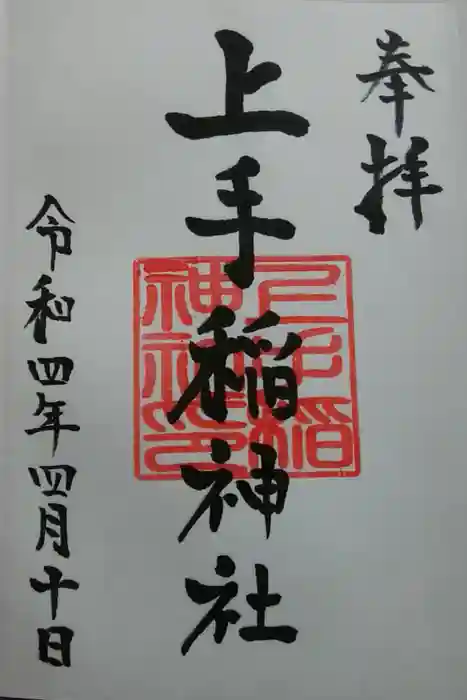 奉拝
上手稲神社
上手稲
神社印
令和四年四月十日